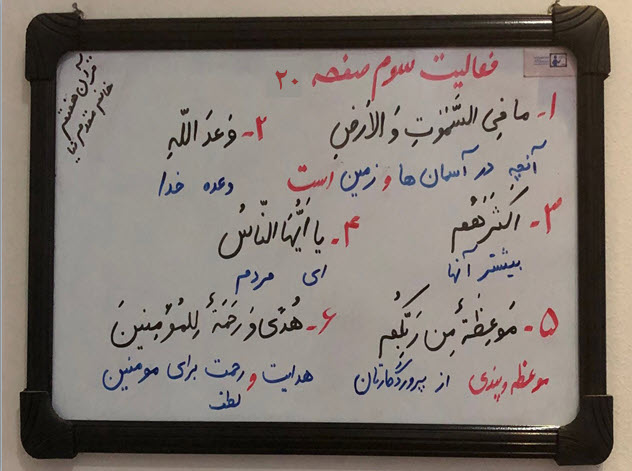 قرآن هفتم
فعالیت سوم صفحه ۲۰
۱- ما فِی السَّمٰوٰتِ وَ الأَرضِ
۲- وَعدَ اللّٰهِ
آنچه در آسمان ها و زمین است
وعده خدا
۳- اَکثَرَهُم
۴- یا اَیُّهَا النّاسُ
بیشتر آنها
ای مردم
۵- مَوعِظَةٌ مِن رَبِّکُم
۶- هُدًی وَ رَحمَةٌ لِلمُؤمِنینَ
موعظه و پندی از پروردگارتان
هدایت و رحمت برای مومنین
لطف